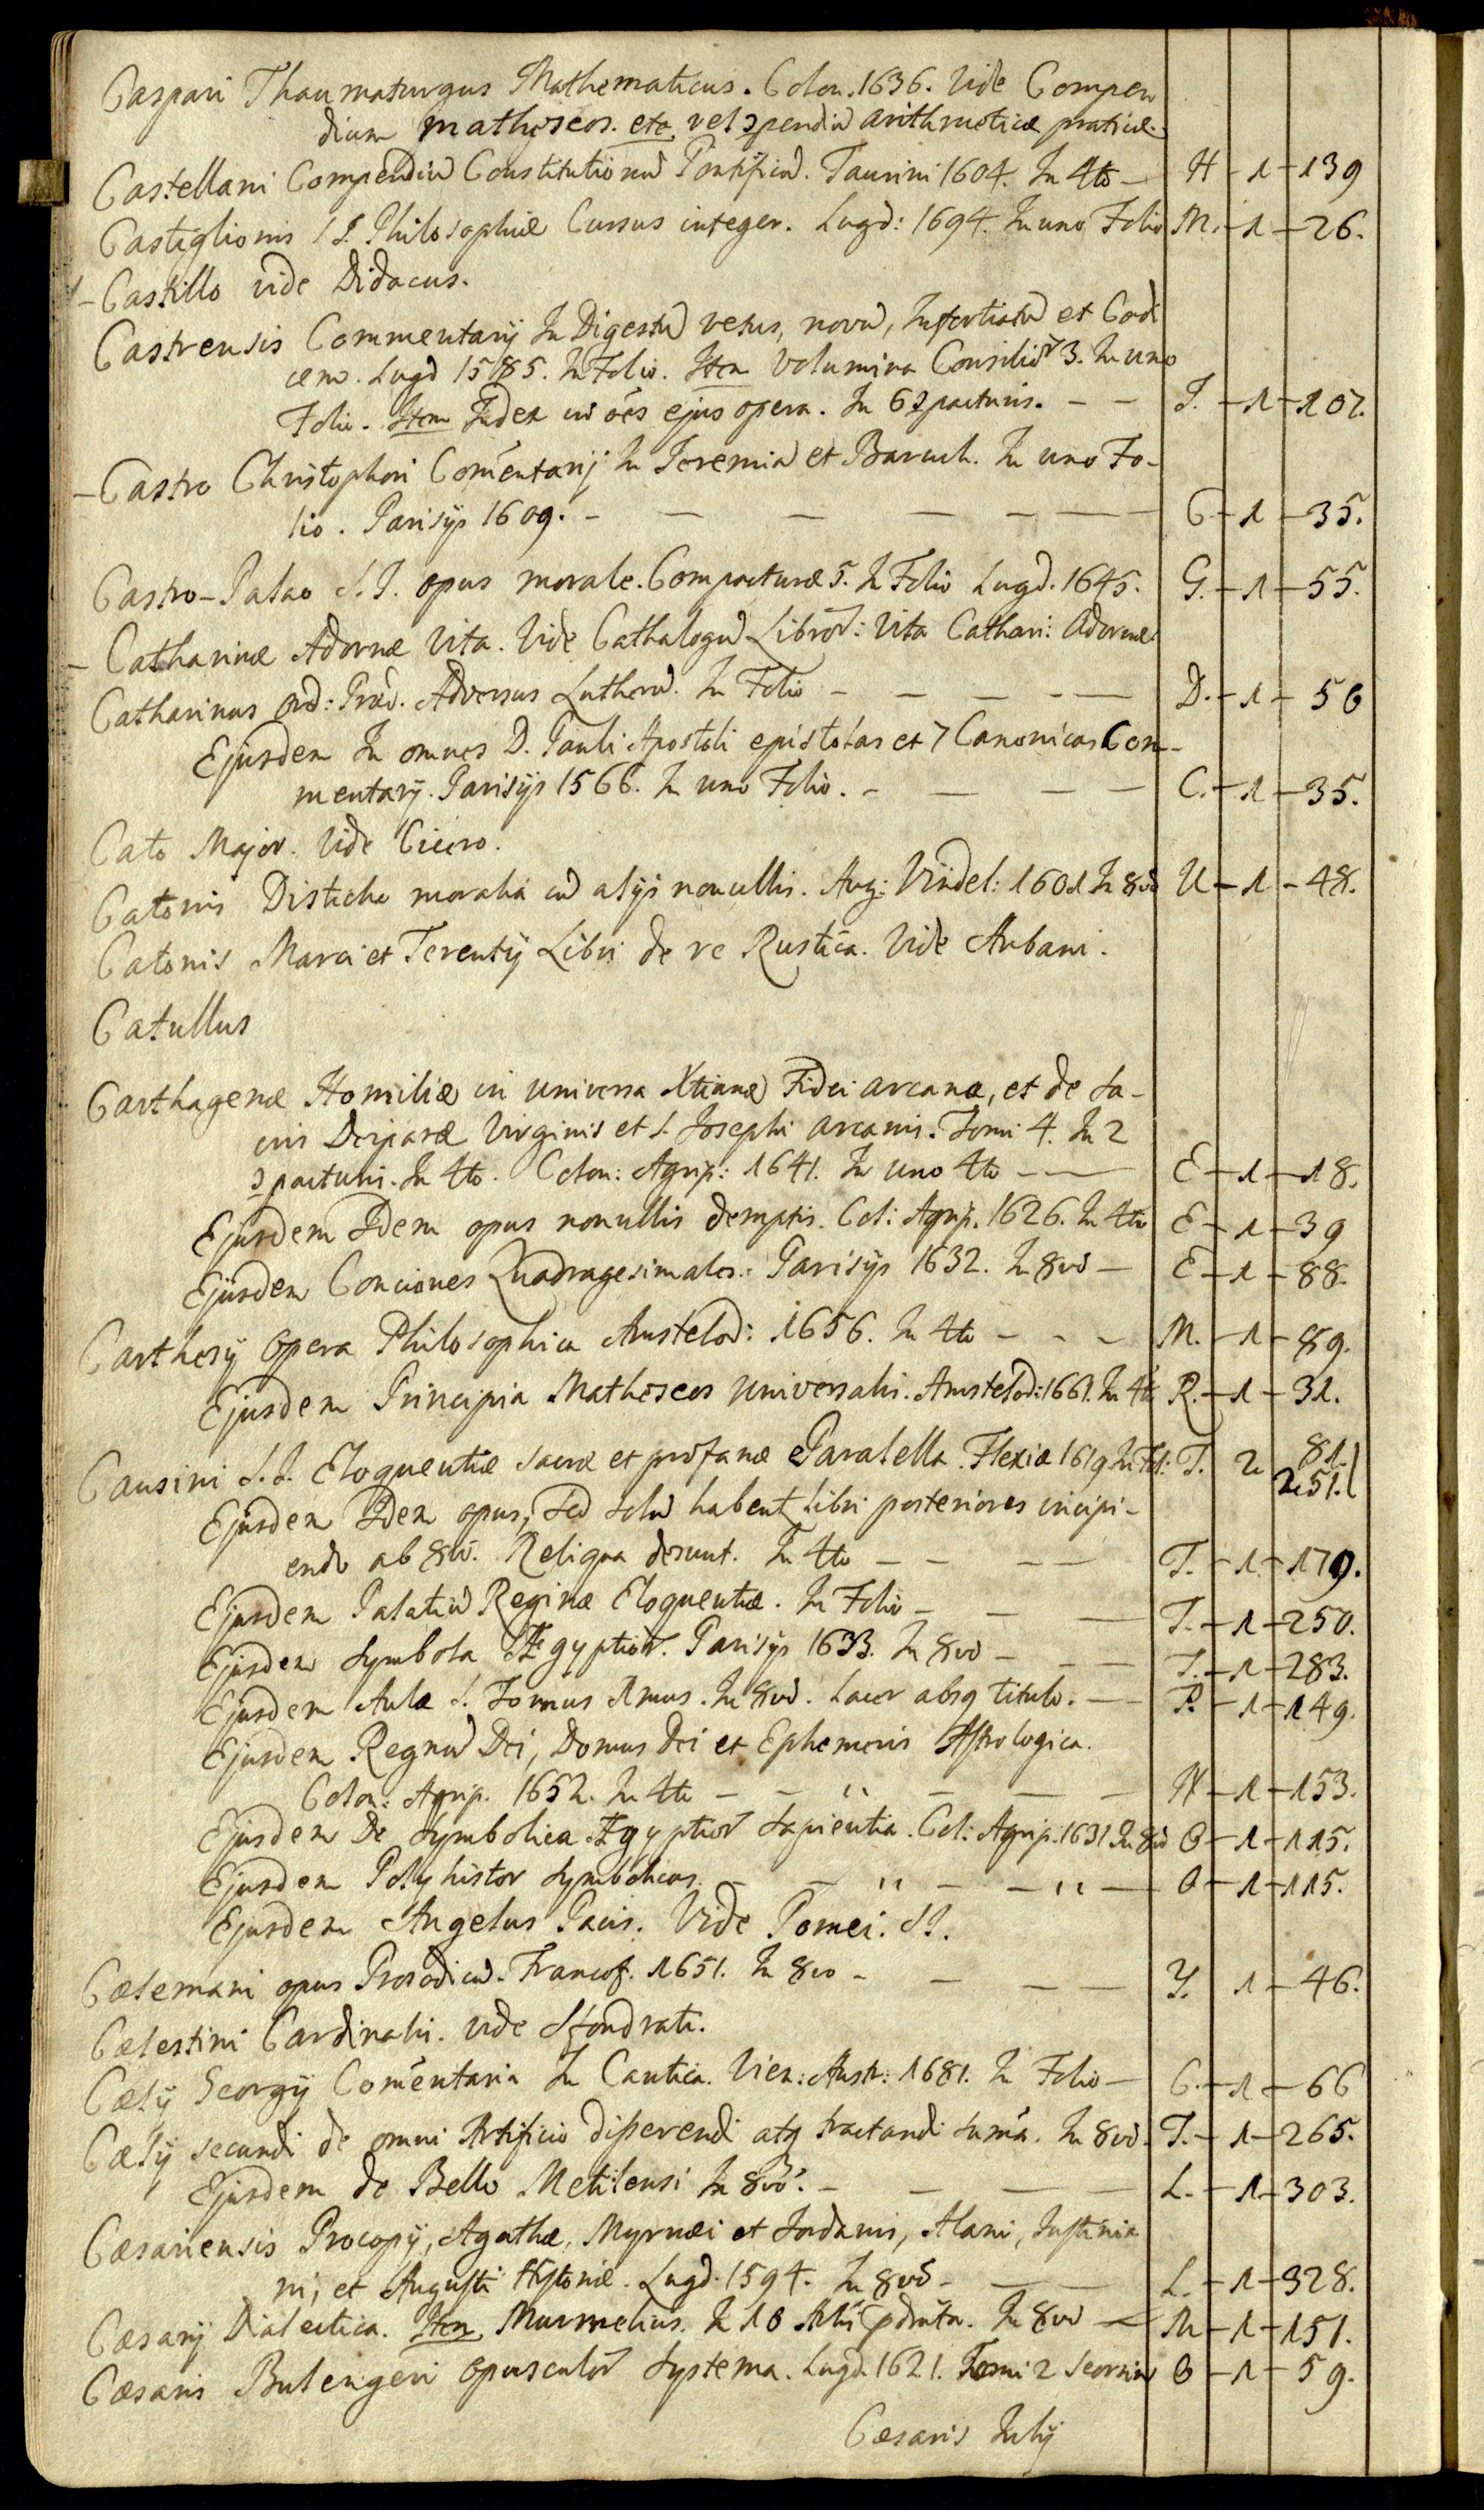 Caspari Thaumaturgus Mathematicus. Colon. 1636. Vide Compen
dium matheseos. etc. vel ɔpendiū arithmeticæ praticæ.
Castellani Compendiū Constitutionū Pontificū. Taurini 1604. In 4to — H - 1 - 139
Castiglionis S.J. Philosophiæ Cursus integer. Lugd: 1694. In uno Folio M. - 1 - 26.
- Castillo vide Didacus.
Castrensis Commentarij In Digestū vetus, novū, Infortiatū et Codi
cem. Lugd 1585. In Folio. Item Volumina Consilior 3. In uno
Folio. Item Index in oēs ejus opera. In 6 ɔpacturis. - - J. - 1 - 107.
- Castro Christophori Com̄entarij In Jeremiā et Baruch. In uno Fo-
lio. Parisijs 1609. - — — — - — — C - 1 - 35.
Castro-Palao S.J. opus morale. Compacturæ 5. In Folio Lugd. 1645. G. - 1 - 55.
- Catharinæ Adornæ Vita. Vide Cathalogū Libror: Vita Cathari: Adornæ
Catharinus Ord: Præd. Adversus Lutherū. In Folio - — — - — D. - 1 - 56
Ejusdem In omnes D. Pauli Apostoli epistolas et 7 Canonicas Com-
mentarij. Parisijs 1566. In uno Folio. - — — — C. - 1 - 35.
Cato Major. Vide Cicero.
Catonis Disticha moralia cū alijs nonullis. Aug: Vindel: 1601 In 8vo U - 1 - 48.
Catonis Marci et Terentij Libri de re Rustica. Vide Aubani.
Catullus
Carthagenæ Homiliæ in universa Xtianæ Fidei arcana, et de Sa-
cris Deiparæ Virginis et S. Josephi arcanis. Tomi 4. In 2
ɔpacturis. In 4to. Colon: Agrip: 1641. In uno 4to - — E - 1 - 18.
Ejusdem Idem opus nonullis demptis. Col: Agrip. 1626. In 4to E - 1 - 39
Ejusdem Conciones Quadragesimales: Parisijs 1632. In 8vo — E - 1 - 88.
Carthesij Opera Philosophica Amstelod: 1656. In 4to - - - M. - 1 - 89.
Ejusdem Principia Matheseos Universalis. Amstelod: 1661. In 4to R. - 1 - 31.
Causini S.J. Eloquentiæ sacræ et profanæ Paralella. Flexiæ 1619 In Fol: T. 2 81.
251.
Ejusdem Idem opus, sed solū habent libri posteriores incipi-
endo ab 8vo. Reliqua desunt. In 4to - - - - T. - 1 - 179.
Ejusdem Palatiū Reginæ Eloquentiæ. In Folio - — — T. - 1 - 250.
Ejusdem Symbola Ægyptior. Parisijs 1633. In 8vo - - — T. - 1 - 283.
Ejusdem Aulæ S. Tomus 1mus. In 8vo. Lacer absq titulo. — P. - 1 - 149.
Ejusdem Regnū Dei, Domus Dei et Ephemeris Astrologica.
Colon: Agrip. 1652. In 4to - - ,, - - - N - 1 - 153.
Ejusdem De Symbolica Ægyptior Sapientia. Col: Agrip: 1631 In 8vo O - 1 - 115.
Ejusdem Polyhistor Symbolicus. - - ,, - - ,, — O - 1 - 115.
Ejusdem Angelus Pacis. Vide Pomei. S.J.
Cælemani opus Prosodicū. Francof. 1651. In 8vo - — — — Y. 1 - 46.
Cælestini Cardinalis. vide Sfondrati.
Cælij Georgij Com̄entaria In Cantica. Vien: Austr: 1681. In Folio — C. - 1 - 66
Cælij secundi de omni Artificio disserendi atq tractandi sum̄a. In 8vo. T. - 1 - 265.
Ejusdem de Bello Melitensi In 8vo. - — — — L. - 1 - 303.
Cæsariensis Procopij, Agathæ, Myrnæi et Jordanis, Alani, Justinia
ni, et Augusti Hystoriæ. Lugd. 1594. In 8vo - — — L. - 1 - 328.
Cæsarij Dialectica. Item Murmelius. In 10 In 8vo — M - 1 - 151.
Cæsaris Bulengeri Opusculor Systema. Lugd. 1621. Tomi 2 Seorsim O - 1 - 59.
Cæsaris Julij